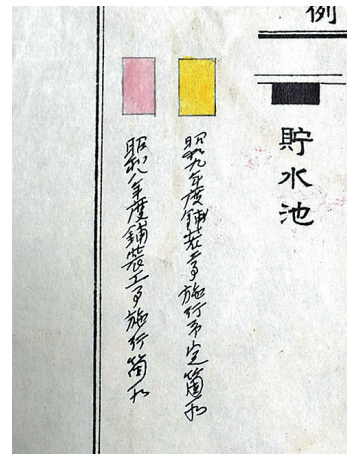 例
貯水池
昭和九年度鋪装工事施行予定箇所
昭和八年度鋪装工事施行箇所